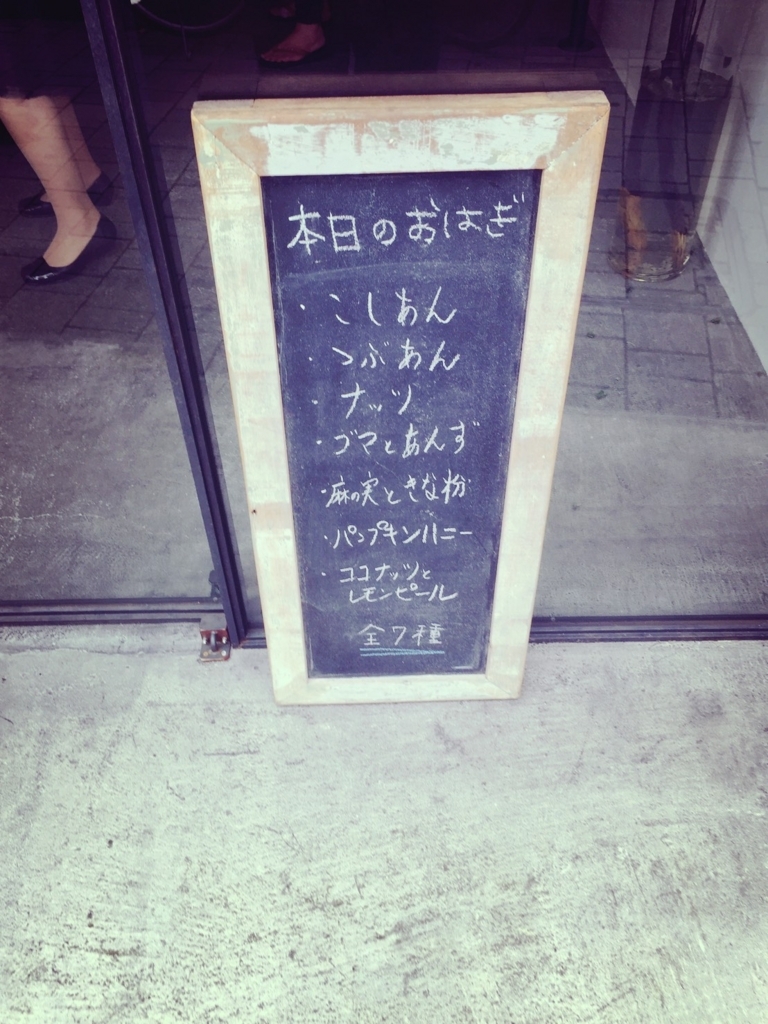 本日のおはぎ
・こしあん
・つぶあん
・ナッツ
・ゴマとあんず
・麻の実ときな粉
・パンプキンハニー
・ココナッツと
レモンピール
全7種